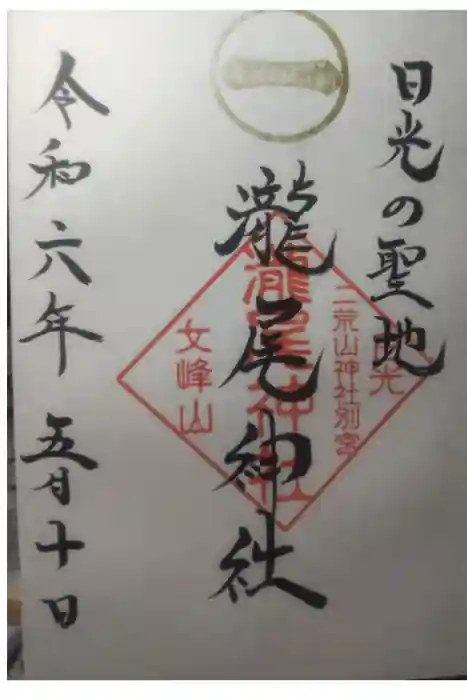 日光の聖地
瀧尾神社
令和六年 五月十日
日光
二荒山神社別宮
瀧尾神社
女峰山